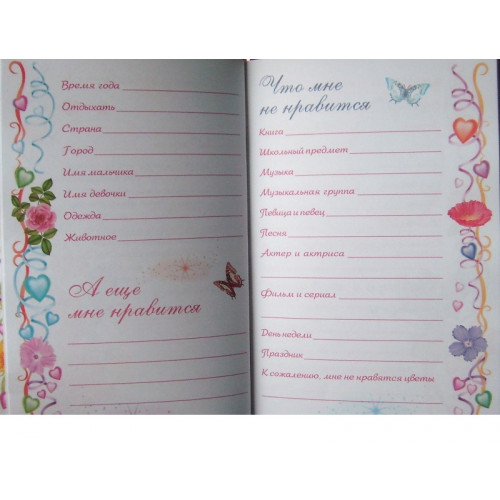 Время года
Отдыхать
Страна
Город
Имя мальчика
Имя девочки
Одежда
Животное
А еще
мне нравится
Что мне
не нравится
Книга
Школьный предмет
Музыка
Музыкальная группа
Певица и певец
Песня
Актер и актриса
Фильм и сериал
День недели
Праздник
К сожалению, мне не нравятся цветы